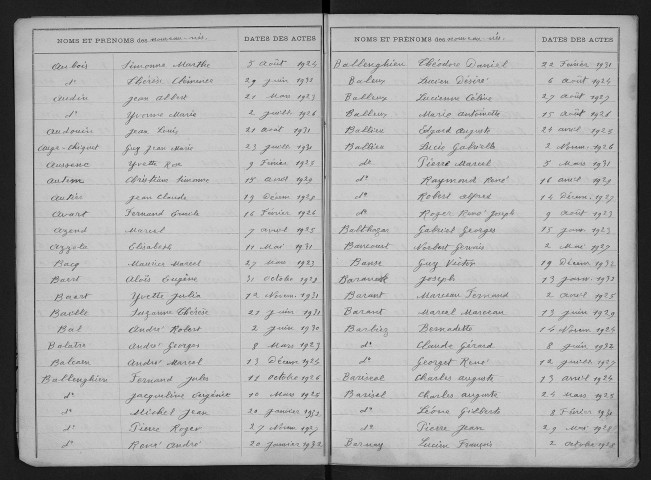 NOMS ET PRÉNOMS des nouveau-nés. DATES DES ACTES
Aubois Simonne Marthe 5 Août 1924
d° Thérèse Clémence 29 juin 1932
Audin Jean Albert 21 Mars 1923
d° Yvonne Marie 2 juillet 1926
Audouin Jean Louis 21 août 1931
Guy Jean Marie 23 juillet 1931
Yvette Rose 9 Février 1925
Christiane Simonne 15 avril 1929
Jean Claude 19 Décem 1928
Avart Fernand 16 Février 1926
Azend Marcel 7 avril 1925
Azzola Elisabeth 11 Mai 1931
Bacq Maurice Marcel 27 Mars 1923
Baert Aloïs Eugène 31 octobre 1928
Baert Yvette Julia 12 Novem. 1931
Baville Suzanne Thérèse 21 juin 1931
Bal André Robert 2 juin 1930
Balatre André Georges 8 Mars 1923
Balcaen André Marcel 13 Décem 1924
Ballenghien Fernand Jules 18 octobre 1926
d° Jacqueline Eugénie 10 Mars 1925
d° Michel Jean 20 janvier 1932
d° Pierre Roger 27 Novem. 1927
d° René André 20 janvier 1932
NOMS ET PRÉNOMS des nouveau-nés. DATES DES ACTES
Ballenghien Théodore Daniel 22 Février 1931
Baleux Lucien Désiré 6 août 1924
Balleux Lucienne Céline 27 août 1927
Balleux Marie Antoinette 15 août 1926
Ballieu Edgard Auguste 24 avril 1925
Ballieu Lucie Gabrielle 2 Novem. 1926
d° Pierre Marcel 5 Mars 1931
d° Raymond René 16 avril 1929
d° Robert Alfred 14 Décem. 1927
d° Roger René Joseph 9 août 1923
Balthazar Gabriel Georges 15 1923
Bancourt Norbert 2 Mai 1927
Banse Guy Victor 19 Décem 1932
Joseph 13 1932
Barant Marceau Fernand 2 avril 1925
Barant Marcel Marceau 13 juin 1929
Barbiez Bernadette 14 Novem 1928
d° Claude Gérard 8 juin 1932
d° Georget René 12 juillet 1927
Bariseel Charles Auguste 13 avril 1924
Barisel Charles Auguste 24 Mars 1925
d° Léone Gilberte 8 Février 1931
d° Pierre Jean 29 Mai 1928
Lucien François 2 octobre 1928